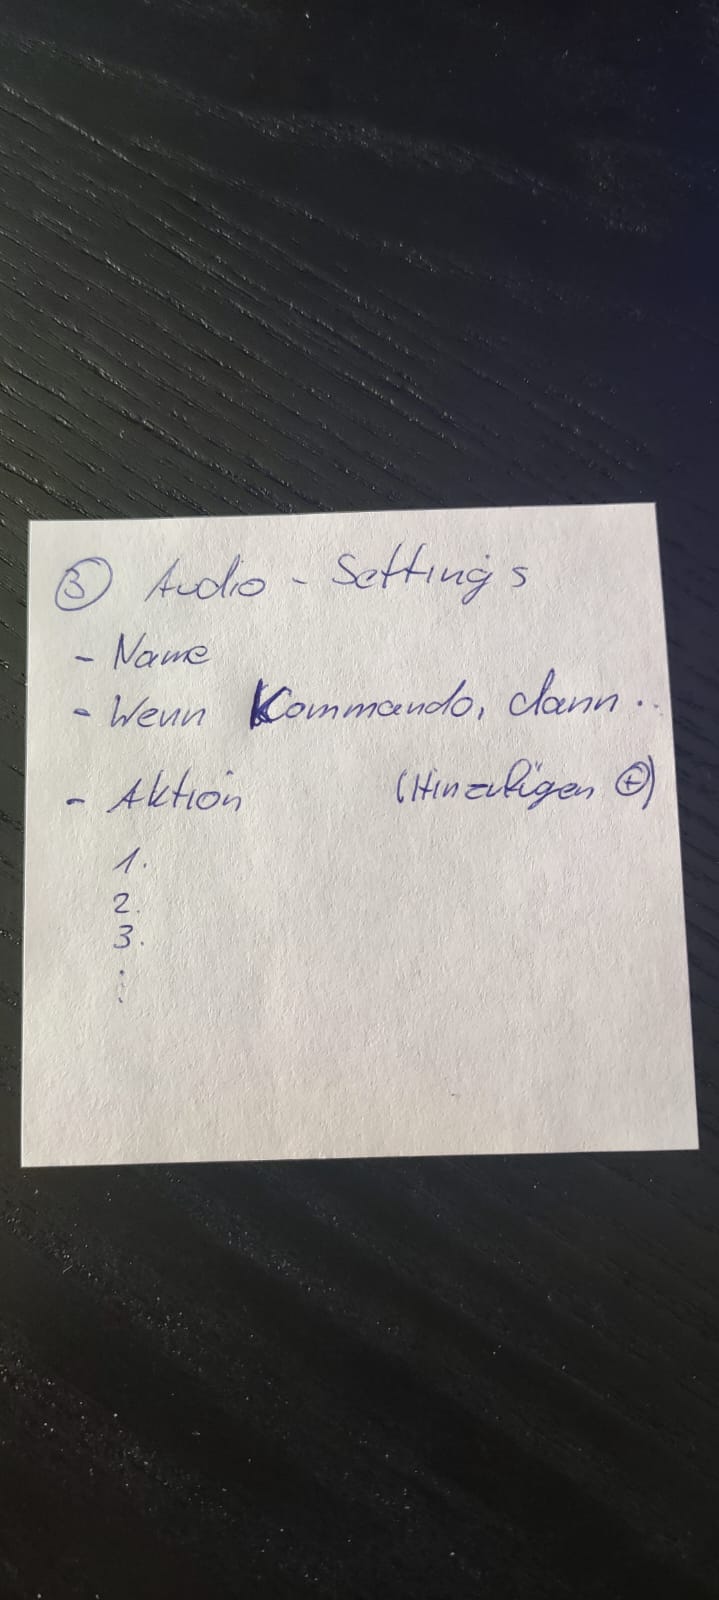 ③ Audio - Settings
- Name
- Wenn Kommando, dann ..
- Aktion (Hinzufügen ⊕)
1.
2.
3.
⋮